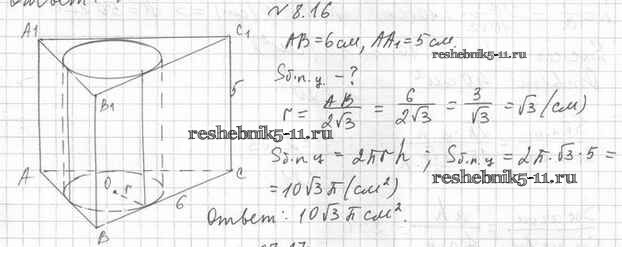 № 8.16
AB = 6 см, AA₁ = 5 см.
reshebnik5-11.ru
Sб.п.ц. - ?
r = AB/2√3 = 6/2√3 = 3/√3 = √3 (см)
reshebnik5-11.ru
Sб.п.ц = 2πrh ; Sб.п.ц = 2π·√3·5 =
reshebnik5-11.ru
= 10√3 π (см²)
Ответ: 10√3 π см².
A1
C1
B1
5
A
O
r
C
6
B